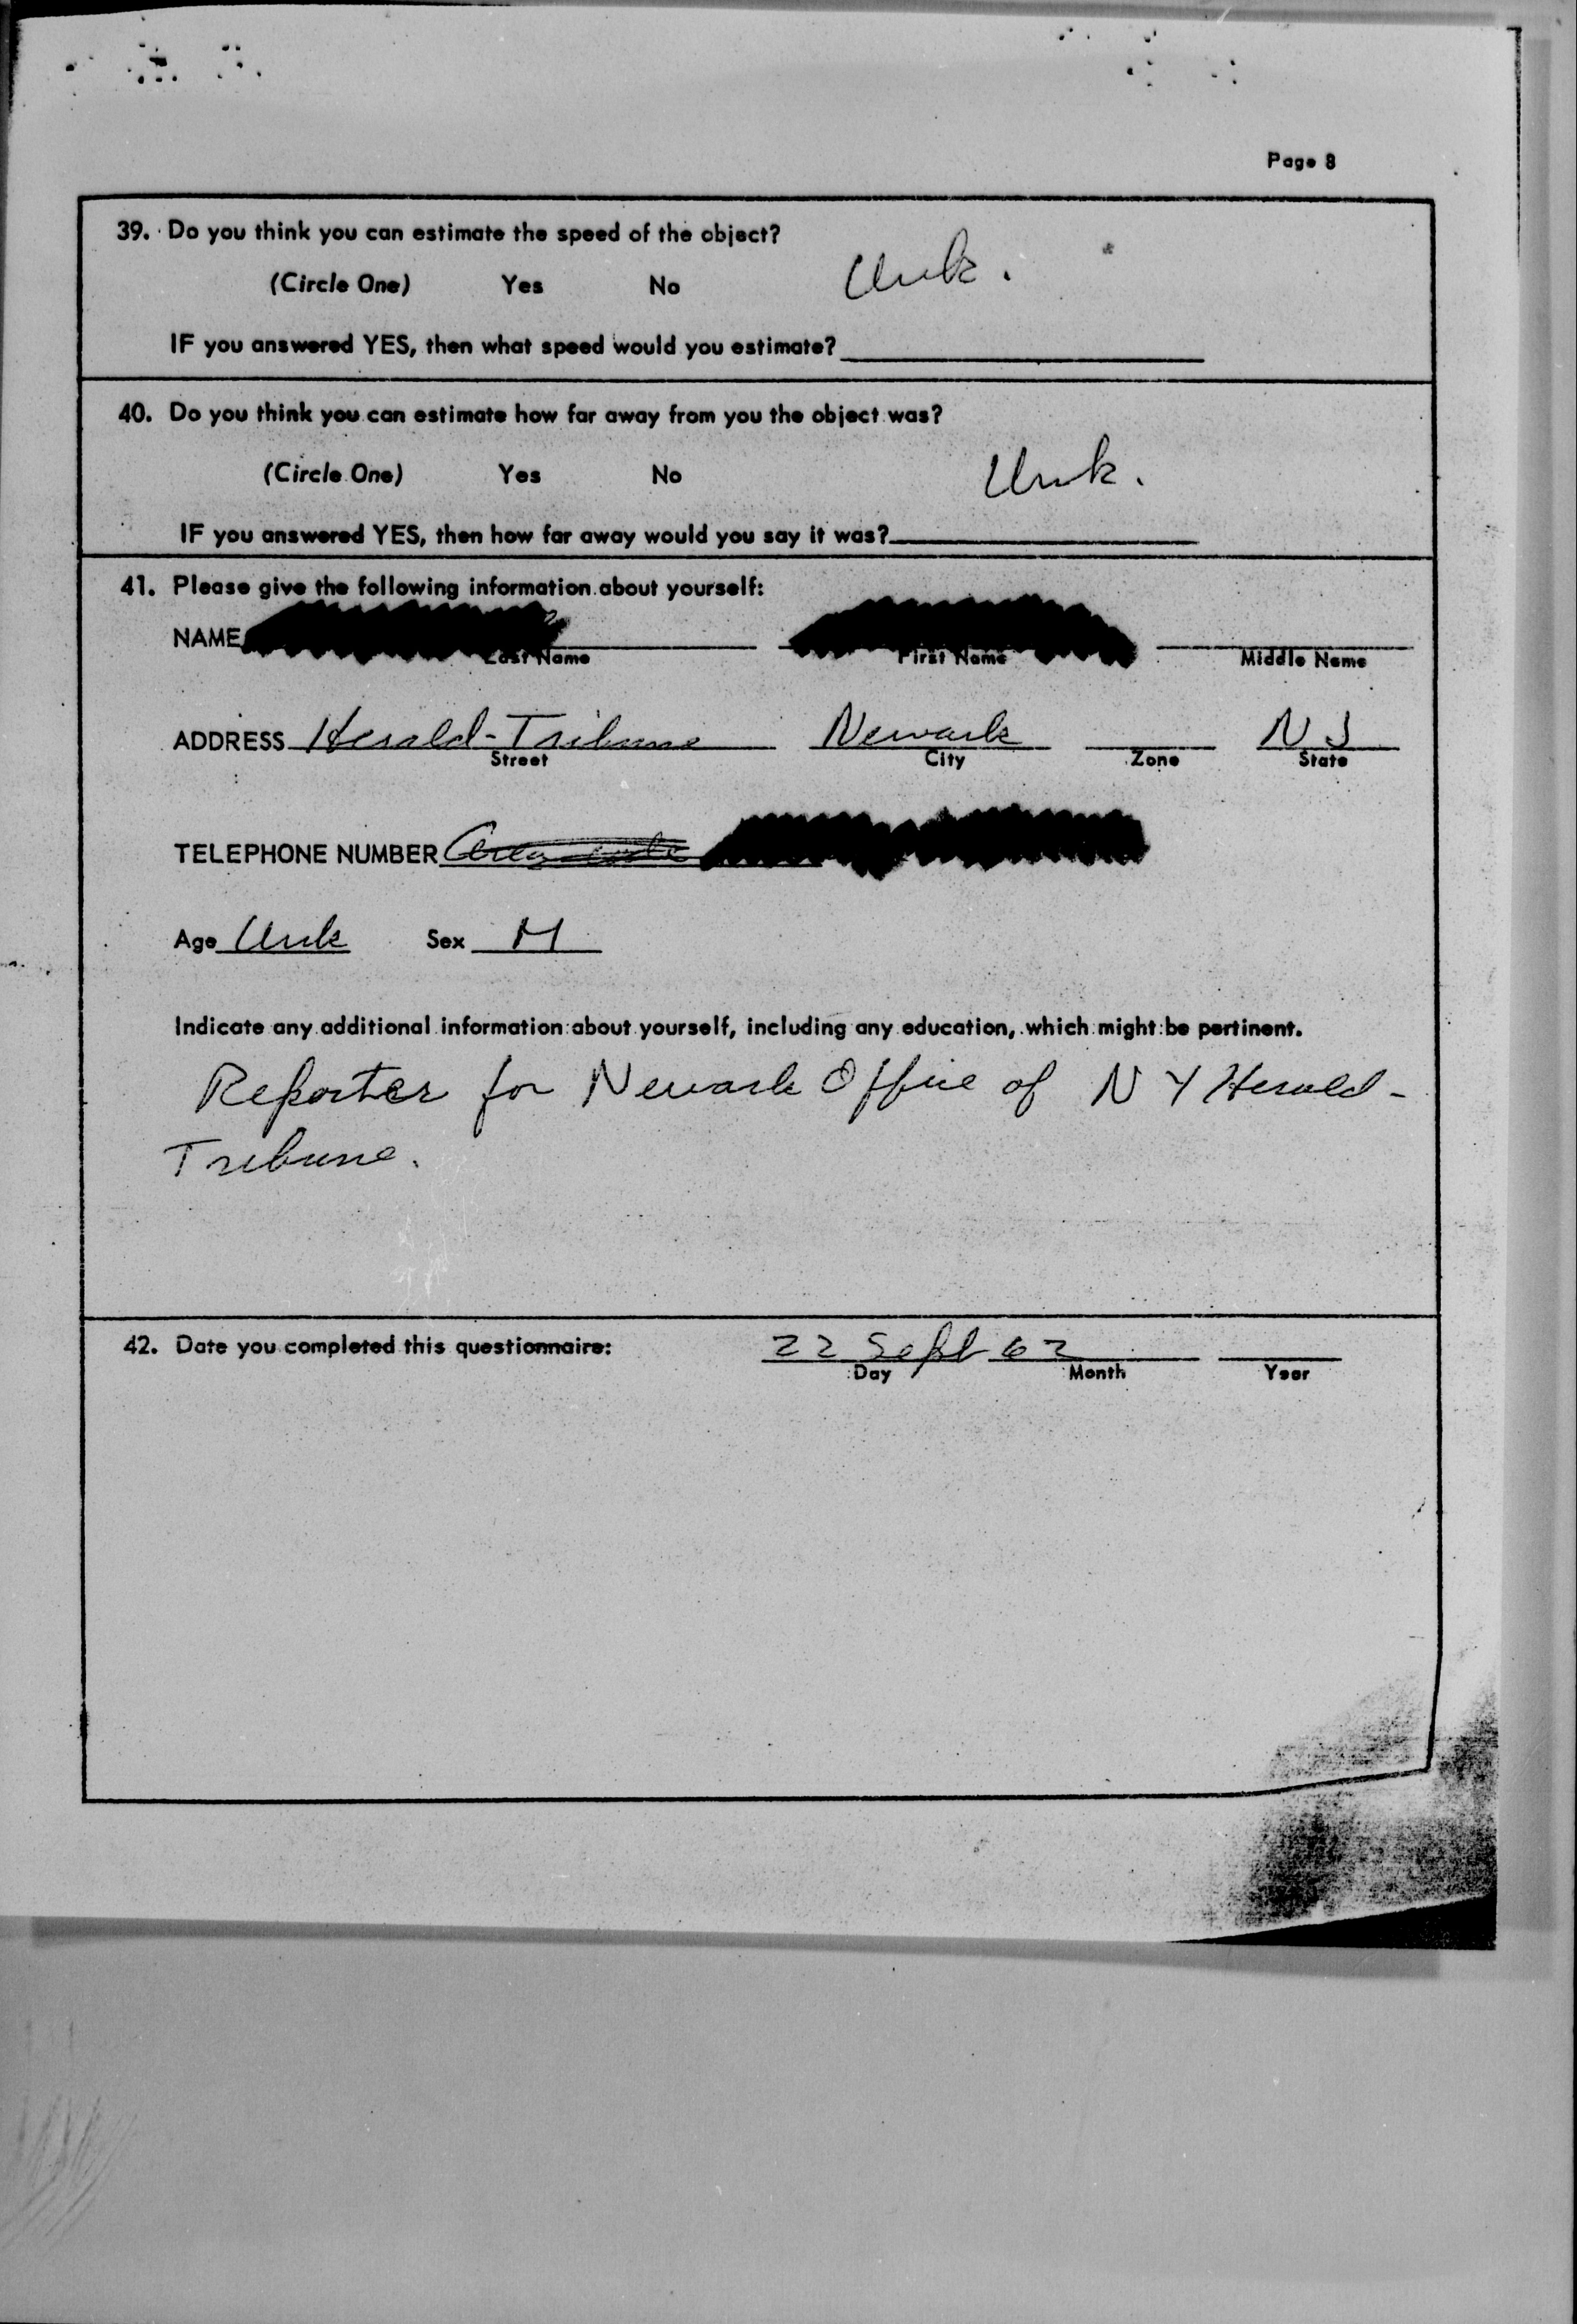 Page 8
39. Do you think you can estimate the speed of the object?
(Circle One) Yes No Unk.
IF you answered YES, then what speed would you estimate?
40. Do you think you can estimate how far away from you the object was?
(Circle One) Yes No Unk.
IF you answered YES, then how far away would you say it was?
41. Please give the following information about yourself:
NAME
Last Name First Name Middle Name
ADDRESS Herald-Tribune Newark NJ
Street City Zone State
TELEPHONE NUMBER Area code
Age Unk Sex M
Indicate any additional information about yourself, including any education, which might be pertinent.
Reporter for Newark Office of NY Herald-
Tribune.
42. Date you completed this questionnaire: 22 Sept 62
Day Month Year